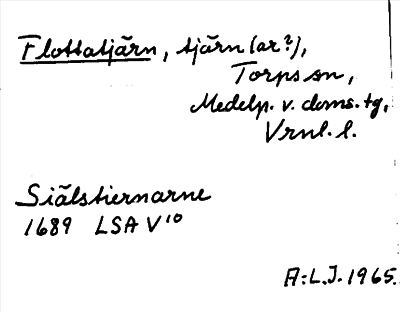 Flottatjärn, tjärn (ar?),
Torps sn,
Medelp. v. doms. tg,
Vrnl. l.
Siälstiernarne
1689 LSA V¹⁰
A:L.J. 1965.